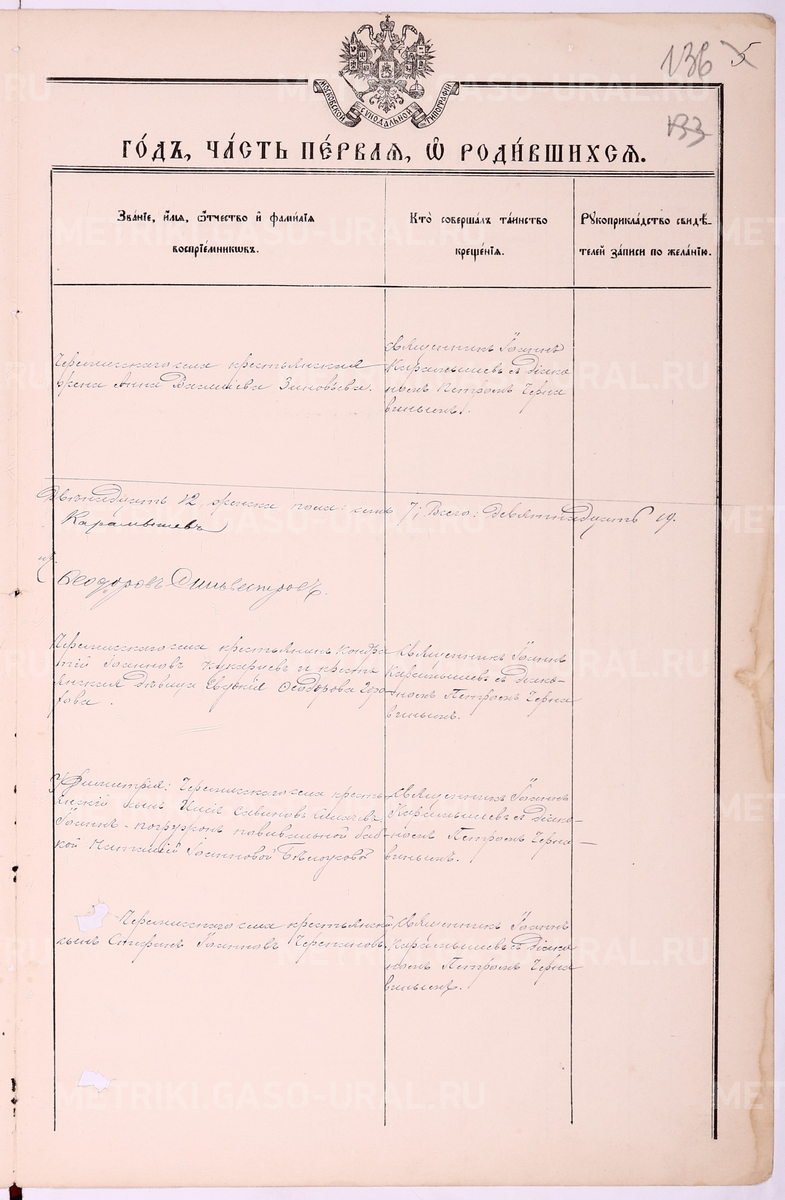 136 5
133
МОСКОВСКОЙ СѴНОДАЛЬНОЙ ТИПОГРАФІИ
ГО́ДЪ, ЧА́СТЬ ПЕ́РВАЯ, Ѽ РОДИ́ВШИХСЯ.
Зва́ніе, и҆́мя, ѻ҆́тчество и҆ фами́лія
воспріе́мникѡвъ.
Кто̀ соверша́лъ та́инство
креще́нія.
Рꙋкоприкла́дство свидѣ́-
телей за́писи по жела́нію.
Черемисскаго села крестьянская
жена Анна Василіева Зиновьева.
Священникъ Іоаннъ
Карамышевъ съ діако-
номъ Петромъ Черна
виным.
Двѣнадцать 12, женска пола: семь 7; Всего: девятнадцать 19.
Карамышевъ
Ѳеодоръ Сильвестровъ.
Черемисскаго села крестьянинъ Кондра
тій Іоанновъ и кресть
янская дѣвица Евдокія Ѳеодорова
Священникъ Іоаннъ
Карамышевъ съ діако-
номъ Петромъ Черна
винымъ.
Димитрія: Черемисскаго села кресть
янскій сынъ Савиновъ
Іоаннъ - погруженъ повивальной баб
кой Наталіей Іоанновой Бѣлоусовой
Священникъ Іоаннъ
Карамышевъ съ діако-
номъ Петромъ Черна-
винымъ.
Черемисскаго села крестьянскій
сынъ Стефанъ Іоанновъ Черепановъ.
Священникъ Іоаннъ
Карамышевъ съ діако
номъ Петромъ Черна
винымъ.
METRIKI.GASO-URAL.RU